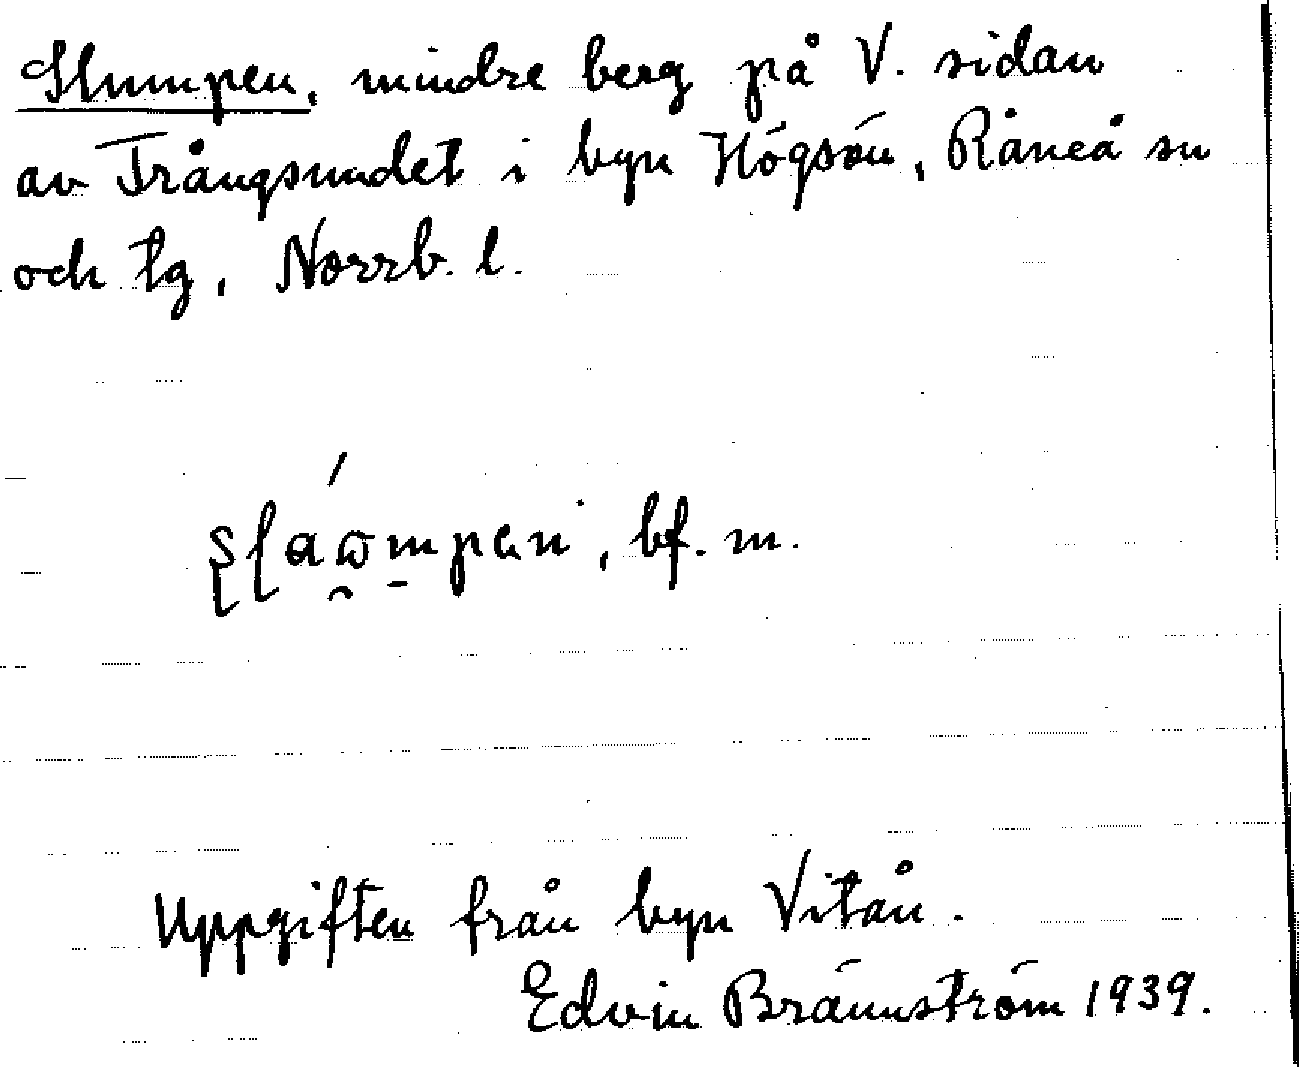 Slumpen, mindre berg på V. sidan
av Trångsundet i byn Högsön, Råneå sn
och tg, Norrb. l.
, bf. m.
Uppgiften från byn Vitån.
Edvin Brännström 1939.